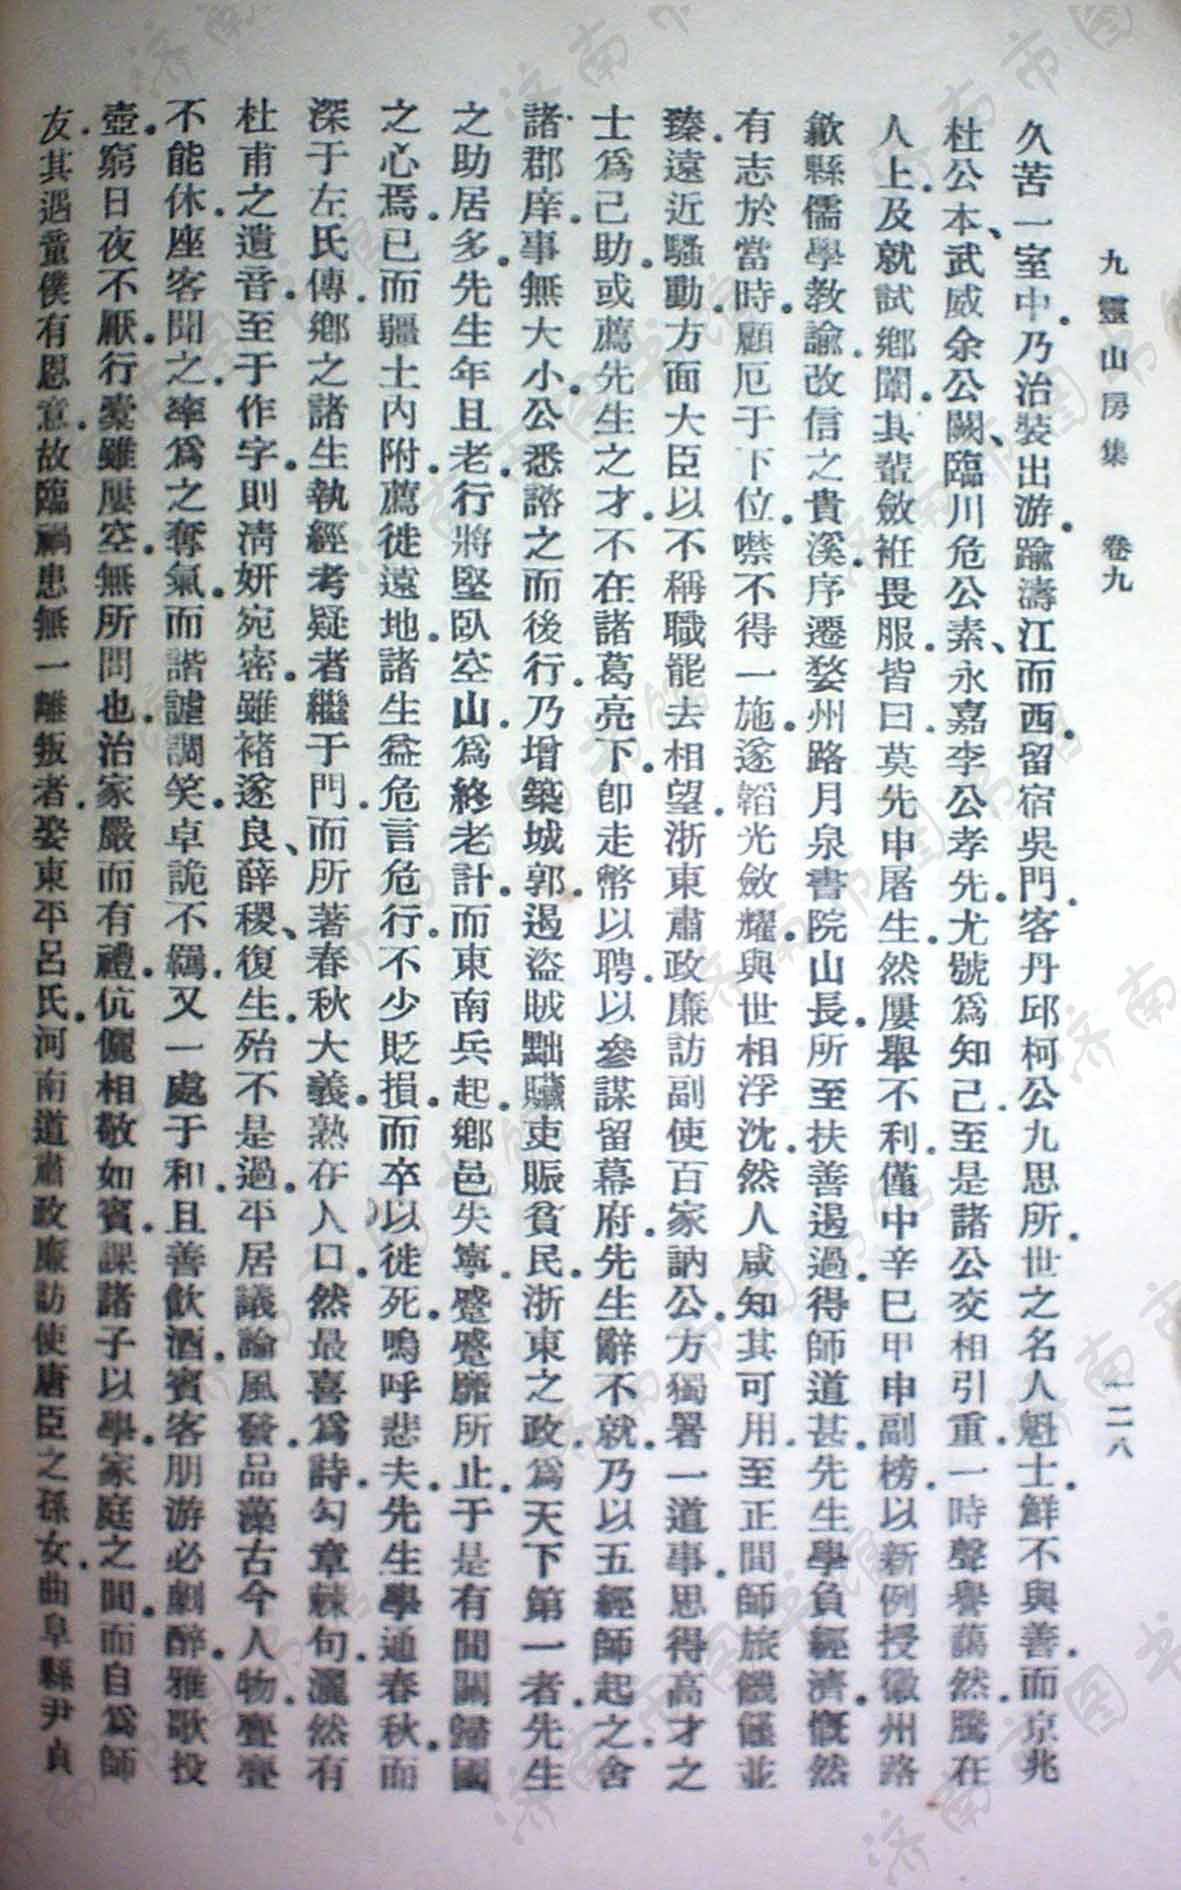 九靈山房集　卷九　一二八
久苦一室中．乃治裝出游．踰濤江而西．留宿吳門．客丹邱柯公九思所．世之名人魁士．鮮不與善．而京兆
杜公本、武威余公闕、臨川危公素、永嘉李公孝先．尤號爲知己．至是諸公交相引重．一時聲譽藹然．騰在
人上．及就試鄉闈．其輩斂衽畏服．皆曰．莫先申屠生．然屢舉不利．僅中辛巳甲申副榜．以新例授徽州路
歙縣儒學教諭．改信之貴溪．序遷婺州路月泉書院山長．所至扶善遏過．得師道甚．先生學負經濟．慨然
有志於當時．顧厄于下位．噤不得一施．遂韜光斂耀．與世相浮沈．然人咸知其可用．至正間．師旅饑饉並
臻．遠近騷動．方面大臣．以不稱職罷去相望．浙東肅政廉訪副使百家訥公．方獨署一道事．思得高才之
士爲己助．或薦先生之才．不在諸葛亮下．卽走幣以聘．以參謀留幕府．先生辭不就．乃以五經師起之．舍
諸郡庠．事無大小．公悉諮之而後行．乃增築城郭．遏盜賊．黜贓吏．賑貧民．浙東之政．爲天下第一者．先生
之助居多．先生年且老．行將堅臥空山．爲終老計．而東南兵起．鄉邑失寧．蹙蹙靡所止．于是有間關歸國
之心焉．已而疆土內附．薦徙遠地．諸生益危言危行．不少貶損．而卒以徙死．嗚呼悲夫．先生學通春秋．而
深于左氏傳．鄉之諸生．執經考疑者繼于門．而所著春秋大義．熟在人口．然最喜爲詩．勾章棘句．灑然有
杜甫之遺音．至于作字．則清妍宛密．雖褚遂良、薛稷、復生．殆不是過．平居議論風發．品藻古今人物．亹亹
不能休．座客聞之．率爲之奪氣．而諧謔調笑．卓詭不羈．又一處于和．且善飲酒．賓客朋游必劇醉．雅歌投
壺．窮日夜不厭．行橐雖屢空．無所問也．治家嚴而有禮．伉儷相敬如賓．課諸子以學．家庭之間．而自爲師
友．其遇童僕有恩意．故臨禍患無一離叛者．娶東平呂氏．河南道肅政廉訪使唐臣之孫女．曲阜縣尹貞